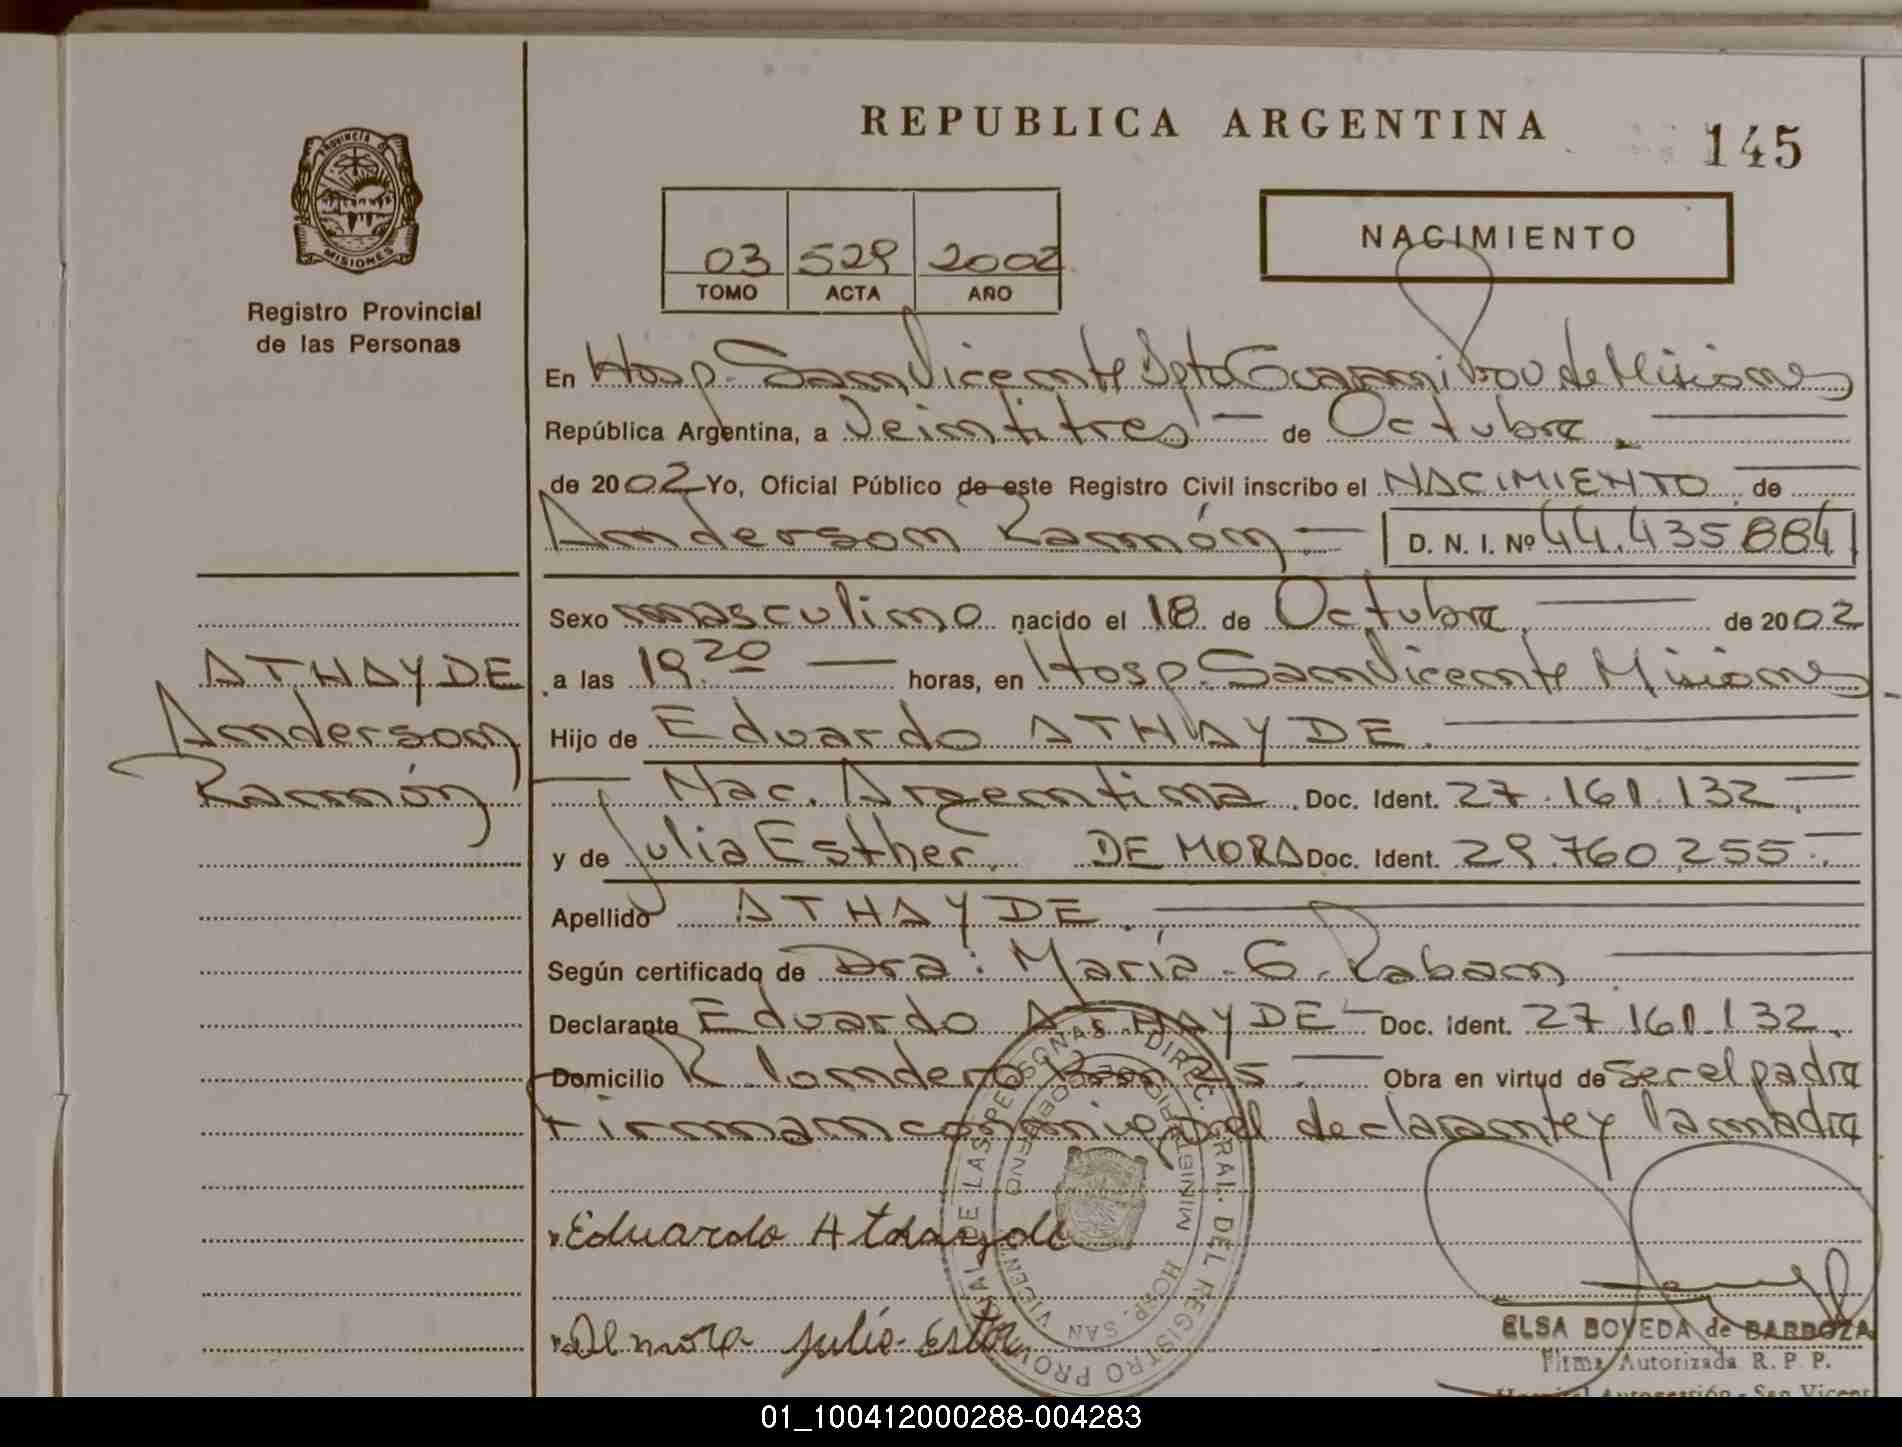 REPUBLICA ARGENTINA
145
PROVINCIA DE
MISIONES
Registro Provincial
de las Personas
03 529 2002
TOMO ACTA AÑO
NACIMIENTO
En Hosp. San Vicente Dpto Guaraní Prov de Misiones
República Argentina, a Veintitres de Octubre
de 2002 Yo, Oficial Público de este Registro Civil inscribo el NACIMIENTO de
Anderson Ramón D. N. I. Nº 44.435884
Sexo masculino nacido el 18 de Octubre de 2002
a las 19.20 horas, en Hosp. San Vicente Misiones
Hijo de Eduardo ATHAYDE.
Nac. Argentina Doc. Ident. 27.161.132
y de Julia Esther DE MORA Doc. Ident. 29.760.255
Apellido ATHAYDE.
Según certificado de Dra: María G. Raban
Declarante Eduardo ATHAYDE Doc. Ident. 27.161.132.
Domicilio Obra en virtud de ser el padre
Firman conmigo el declarante y la madre
ATHAYDE
Anderson
Ramón
Eduardo Athayde
De mora julia Ester
DIREC. GRAL. DEL REGISTRO PROVINCIAL DE LAS PERSONAS
MINISTERIO DE GOBIERNO
HOSP. SAN VICENTE
ELSA BOVEDA de BARBOZA
Firma Autorizada R. P. P.
Hospital Autogestión - San Vicent
01_100412000288-004283